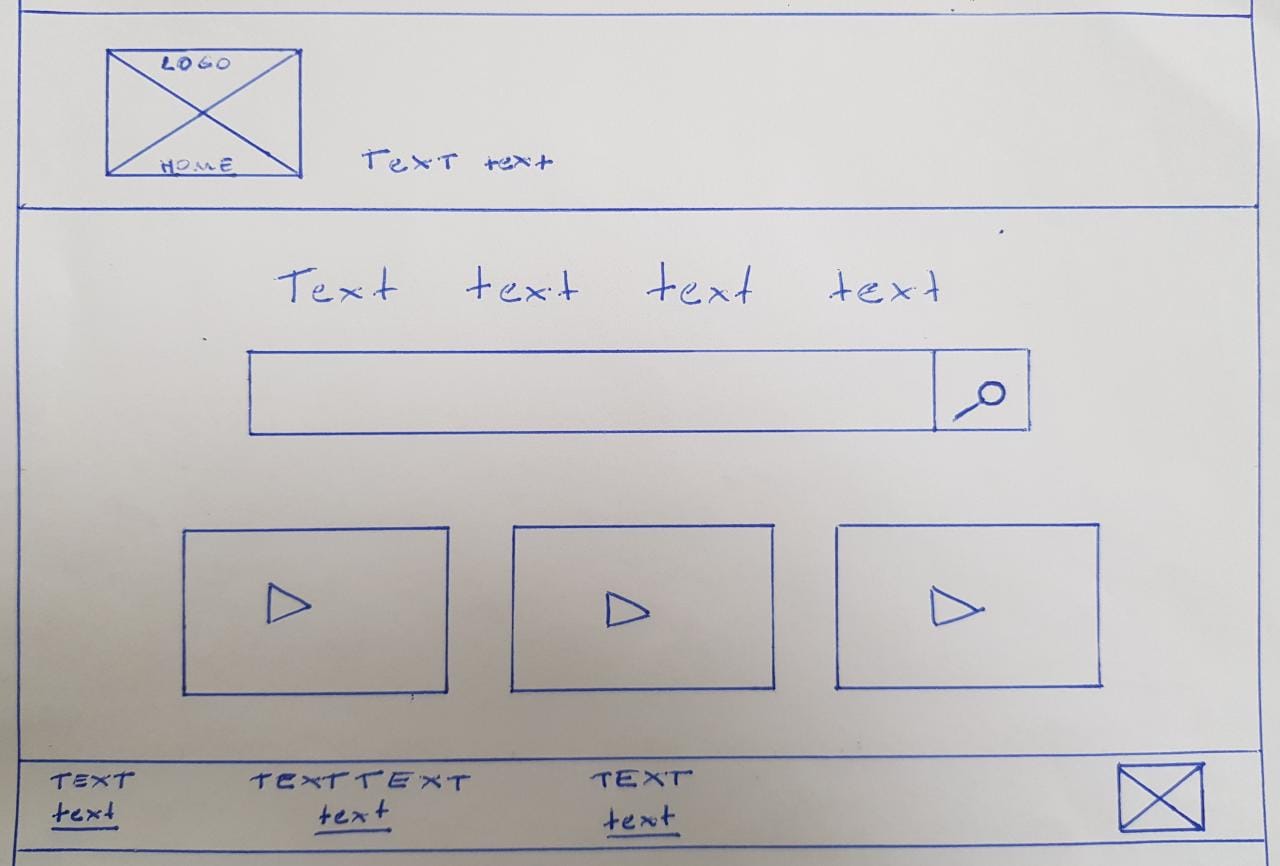 LOGO
HOME
TexT text
Text text text text
TEXT TEXTTEXT TEXT
text text text